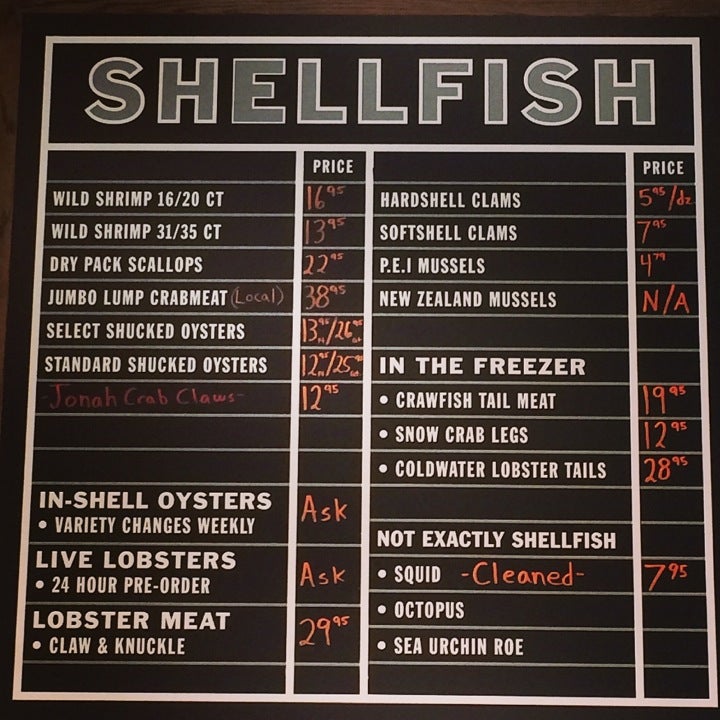 SHELLFISH
PRICE
WILD SHRIMP 16/20 CT 16.95
WILD SHRIMP 31/35 CT 13.95
DRY PACK SCALLOPS 22.95
JUMBO LUMP CRABMEAT (Local) 38.95
SELECT SHUCKED OYSTERS 13.95/26.95
STANDARD SHUCKED OYSTERS 12.95/25.95
-Jonah Crab Claws- 12.95
IN-SHELL OYSTERS Ask
• VARIETY CHANGES WEEKLY
LIVE LOBSTERS Ask
• 24 HOUR PRE-ORDER
LOBSTER MEAT 29.95
• CLAW & KNUCKLE
PRICE
HARDSHELL CLAMS 5.95/dz
SOFTSHELL CLAMS 7.95
P.E.I MUSSELS 4.79
NEW ZEALAND MUSSELS N/A
IN THE FREEZER
• CRAWFISH TAIL MEAT 19.95
• SNOW CRAB LEGS 12.95
• COLDWATER LOBSTER TAILS 28.95
NOT EXACTLY SHELLFISH
• SQUID -Cleaned- 7.95
• OCTOPUS
• SEA URCHIN ROE